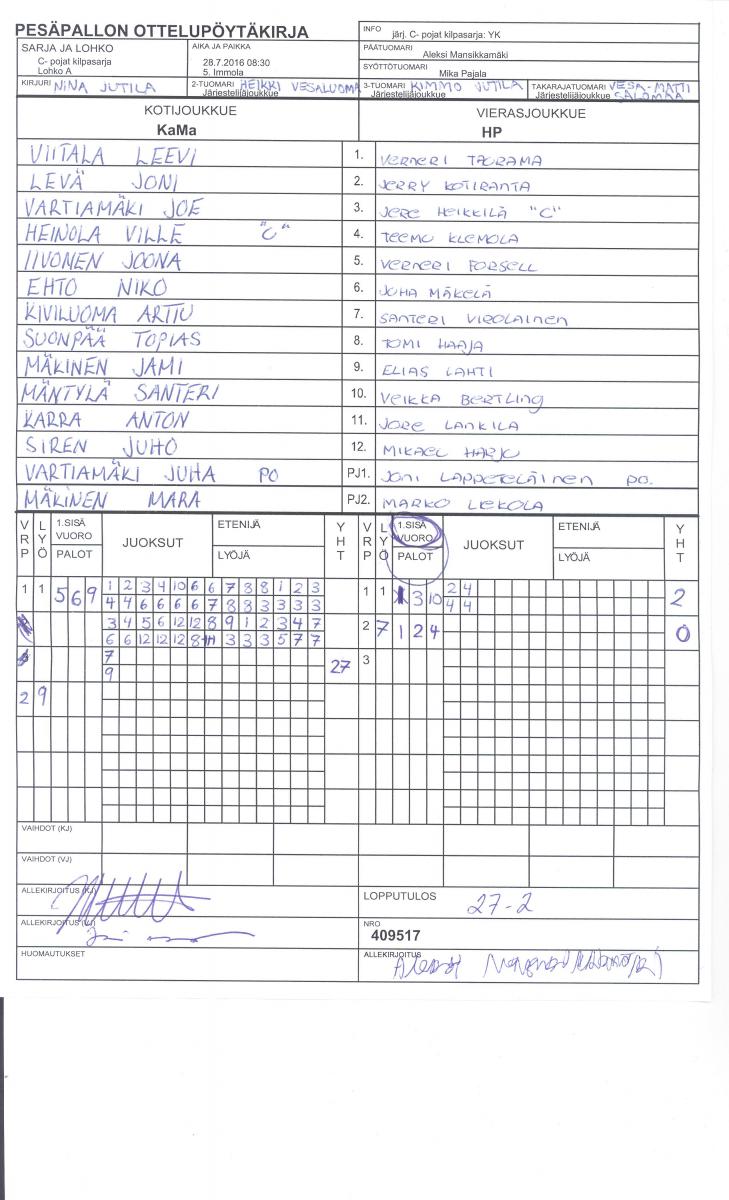 PESÄPALLON OTTELUPÖYTÄKIRJA
INFO järj. C- pojat kilpasarja: YK
SARJA JA LOHKO
C- pojat kilpasarja
Lohko A
AIKA JA PAIKKA
28.7.2016 08:30
5. Immola
PÄÄTUOMARI
Aleksi Mansikkamäki
SYÖTTÖTUOMARI
Mika Pajala
KIRJURI NINA JUTILA
2-TUOMARI HEIKKI VESALUOMA
Järjestelijäjoukkue
3-TUOMARI KIMMO JUTILA
Järjestelijäjoukkue
TAKARAJATUOMARI VESA-MATTI
Järjestelijäjoukkue SALOMAA
KOTIJOUKKUE VIERASJOUKKUE
KaMa HP
VIITALA LEEVI 1. VERNERI TAURAMA
LEVÄ JONI 2. JERRY KOTIRANTA
VARTIAMÄKI JOE 3. JERE HEIKKILÄ "C"
HEINOLA VILLE "C" 4. TEEMU KLEMOLA
IIVONEN JOONA 5. VERNERI FORSELL
EHTO NIKO 6. JUHA MÄKELÄ
KIVILUOMA ARTTU 7. SANTERI VIROLAINEN
SUONPÄÄ TOPIAS 8. TOMI HARJA
MÄKINEN JAMI 9. ELIAS LAHTI
MÄNTYLÄ SANTERI 10. VEIKKA BERTLING
KARRA ANTON 11. JORE LANKILA
SIREN JUHO 12. MIKAEL HARJU
VARTIAMÄKI JUHA PO PJ1. JONI LAPPETELÄINEN PO.
MÄKINEN MARA PJ2. MARKO LIEKOLA
VRP LYÖ 1.SISÄ VUORO PALOT JUOKSUT ETENIJÄ LYÖJÄ YHT VRP LYÖ 1.SISÄ VUORO PALOT JUOKSUT ETENIJÄ LYÖJÄ YHT
1 1 5 6 9 1 2 3 4 10 6 6 7 8 8 1 2 3 1 1 3 10 2 4 2
4 4 6 6 6 6 7 8 8 3 3 3 3 4 4
3 4 5 6 12 12 8 9 1 2 3 4 7 2 7 1 2 4 0
6 6 12 12 12 8 3 3 3 5 7 7
7 27 3
9
2 9
VAIHDOT (KJ)
VAIHDOT (VJ)
ALLEKIRJOITUS (KJ)
LOPPUTULOS 27-2
ALLEKIRJOITUS (VJ)
NRO
409517
HUOMAUTUKSET
ALLEKIRJOITUS